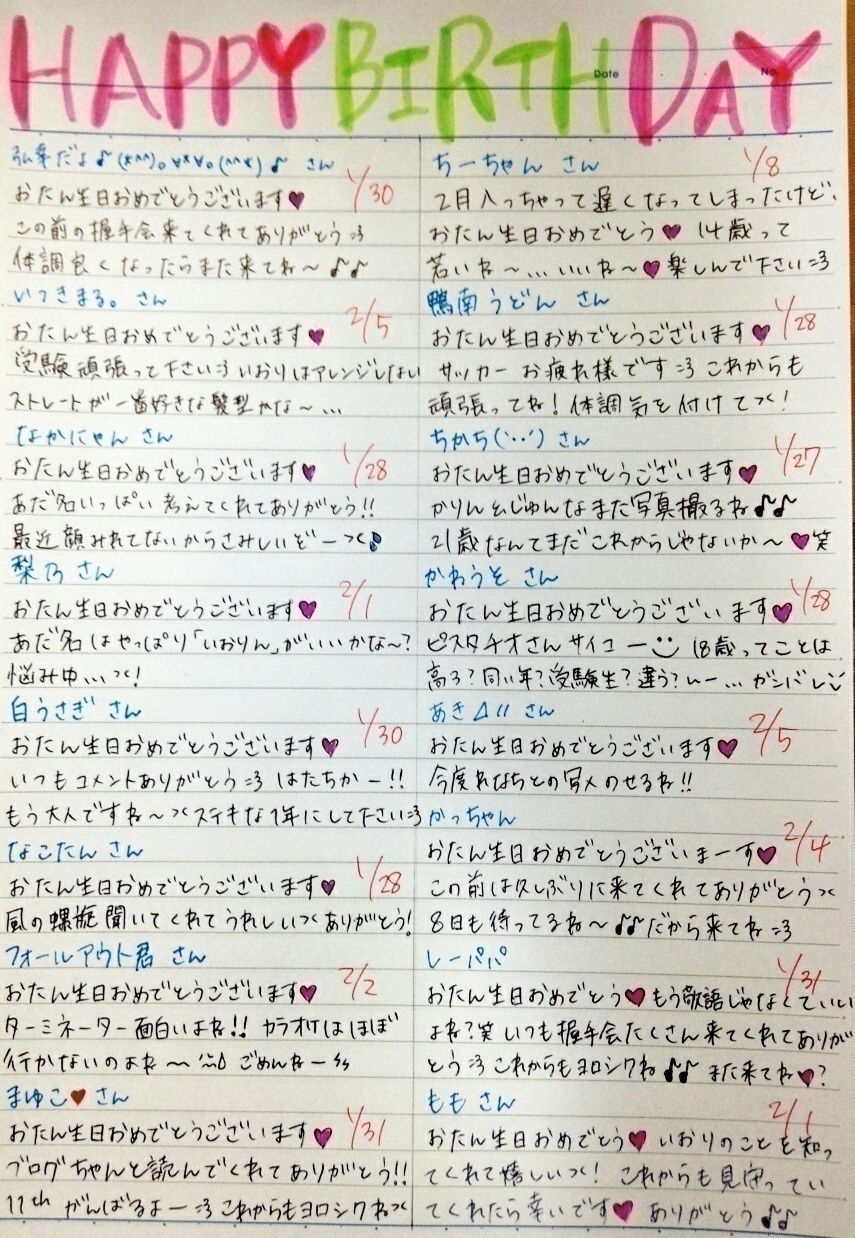 HAPPY BIRTHDAY
Date No.
弘幸だよ♪(*^^)o∀*∀o(^^*)♪ さん 1/30
おたん生日おめでとうございます♥
この前の握手会来てくれてありがとう=3
体調良くなったらまた来てね〜♪♪
いつきまる。さん 2/5
おたん生日おめでとうございます♥
受験頑張って下さい=3 いおりはアレンジしない
ストレートが一番好きな髪型かな〜…
なかにゃん さん 1/28
おたん生日おめでとうございます♥
あだ名いっぱい考えてくれてありがとう!!
最近顔みれてないからさみしいぞーつく
梨乃 さん 2/1
おたん生日おめでとうございます♥
あだ名はやっぱり「いおりん」がいいかな〜?
悩み中…つく!
白うさぎ さん 1/30
おたん生日おめでとうございます♥
いつもコメントありがとう=3 はたちかー!!
もう大人ですね〜つくステキな1年にして下さい=3
なこたん さん 1/28
おたん生日おめでとうございます♥
風の螺旋聞いてくれてうれしいつくありがとう!
フォールアウト君 さん 2/2
おたん生日おめでとうございます♥
ターミネーター面白いよね!! カラオケはほぼ
行かないのよね〜 ごめんねー
まゆこ♥ さん 1/31
おたん生日おめでとうございます♥
ブログちゃんと読んでくれてありがとう!!
11th がんばるよー=3 これからもヨロシクねつく
ちーちゃん さん 1/8
2月入っちゃって遅くなってしまったけど、
おたん生日おめでとう♥ 14歳って
若いね〜…いいね〜♥楽しんで下さい=3
鴨南うどん さん 1/28
おたん生日おめでとうございます♥
サッカーお疲れ様です=3 これからも
頑張ってね!体調気を付けてつく!
ちかち(´･･`) さん 1/27
おたん生日おめでとうございます♥
かりんとじゅんなまだ写真撮るね♪♪
21歳なんてまだこれからじゃないか〜♥笑
かわうそ さん 1/28
おたん生日おめでとうございます♥
ピスタチオさんサイコー 18歳ってことは
高3?同い年?受験生?違う?んー…ガンバレ
あき⊿〃 さん 2/5
おたん生日おめでとうございます♥
今度れなちとの写メのせるね!!
かっちゃん 2/4
おたん生日おめでとうございまーす♥
この前は久しぶりに来てくれてありがとうつく
8日も待ってるね〜♪♪だから来てね=3
レーパパ 1/31
おたん生日おめでとう♥もう敬語じゃなくていい
よね?笑 いつも握手会たくさん来てくれてありが
とう=3 これからもヨロシクね♪♪ また来てね♥?
もも さん 2/1
おたん生日おめでとう♥ いおりのことを知っ
てくれて嬉しいつく! これからも見守ってい
てくれたら幸いです♥ ありがとう♪♪